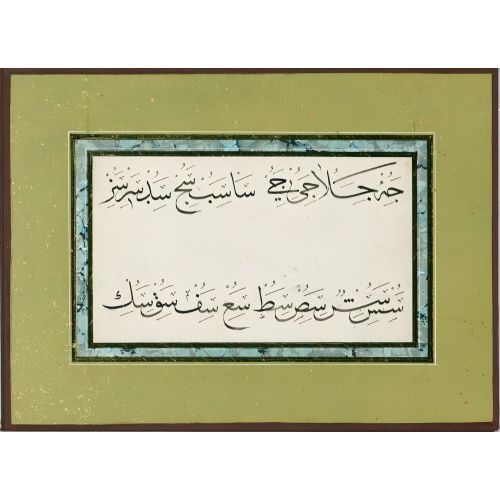 جه جلا جى جي سا سب سج سد سر سز
سس سش سص سط سع سف سق سك